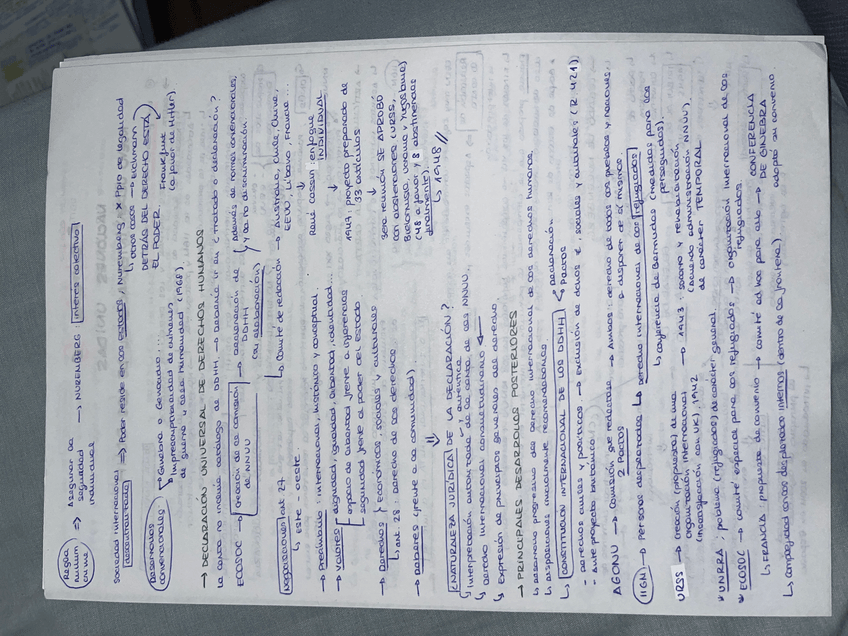 Regla nullum crime ⇒ Asegurar la seguridad individuales → NUREMBERG: interés colectivo
Sociedad internacional descentralizada ⇒ Poder reside en los estados: Nuremberg x Ppio de legalidad
↳ otros casos → Eichmann
DETRÁS DEL DERECHO ESTÁ EL PODER.
Frankfurt (a favor de Hitler)
Desarrollos convencionales: → Ginebra o Genocidio...
↳ Imprescriptibilidad de crímenes de guerra y lesa humanidad (1968)
→ DECLARACIÓN UNIVERSAL DE DERECHOS HUMANOS
La carta no incluía catálogo de DDHH → Debate ¿tratado o declaración?
ECOSOC → Creación de la comisión de NNUU → Declaración de DDHH (su elaboración)
Además de normas convencionales, y la no discriminación
Negociaciones art 27
↳ este - oeste
↳ Comité de redacción → Australia, Chile, China, EEUU, Líbano, Francia...
→ Preámbulo: internacional, histórico y conceptual
→ valores: dignidad, igualdad, libertad, identidad...
espacio de libertad frente a injerencias
seguridad frente al poder del estado
René Cassin: enfoque INDIVIDUAL
↓
1947, proyecto preparado de 33 artículos
↓
→ Derechos } económicos, sociales y culturales
↳ art. 28: derecho de los derechos
→ Deberes (frente a la comunidad)
reunión SE APROBÓ con abstenciones (URSS, Bielorrusia, Ucrania y Yugoslavia) (48 a favor y 8 abstenciones
↳ 1948 //
¿NATURALEZA JURÍDICA DE LA DECLARACIÓN?
↳ Interpretación autorizada de la carta de las NNUU, y auténtica
↳ Derecho internacional consuetudinario
↳ Expresión de principios generales del derecho
→ PRINCIPALES DESARROLLOS POSTERIORES
↳ Desarrollo progresivo del derecho internacional de los derechos humanos.
↳ Disposiciones inicialmente recomendatorias.
↳ CONSTITUCIÓN INTERNACIONAL DE LOS DDHH < Declaración Pactos
- Derechos civiles y políticos → exclusión de dchos e., sociales y culturales (R 421)
- Ante proyecto británico.
AGONU → Comisión que redactase 2 pactos → Ambos: derecho de todos los pueblos y naciones a disponer de sí mismos
IIGM → Personas desplazadas ↳ Derecho internacional de los refugiados
↳ Conferencia de Bermudas (medidas para los perseguidos).
URSS → Creación (propuesta) de una organización internacional (Transferencia con UK), 1942 → 1943: socorro y rehabilitación (Acuerdo administración NNUU), de carácter TEMPORAL
* UNRRA: problema (refugiados) de carácter general
* ECOSOC → Comité especial para los refugiados → Organización internacional de los refugiados.
↳ FRANCIA: propuesta de convenio → Comité ad hoc para ello → CONFERENCIA DE GINEBRA adoptó su convenio.
↳ Complejidad con los desplazados internos (dentro de la frontera)